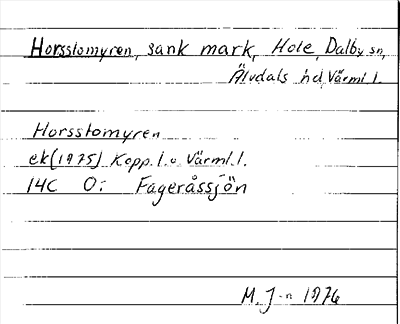 Horsstomyren, sank mark, Hole, Dalby sn,
Älvdals hd, Värml. l.
Horsstomyren
ek (1975) Kopp. l. o. Värml. l.
14C O: Fageråssjön
M. J-n 1976